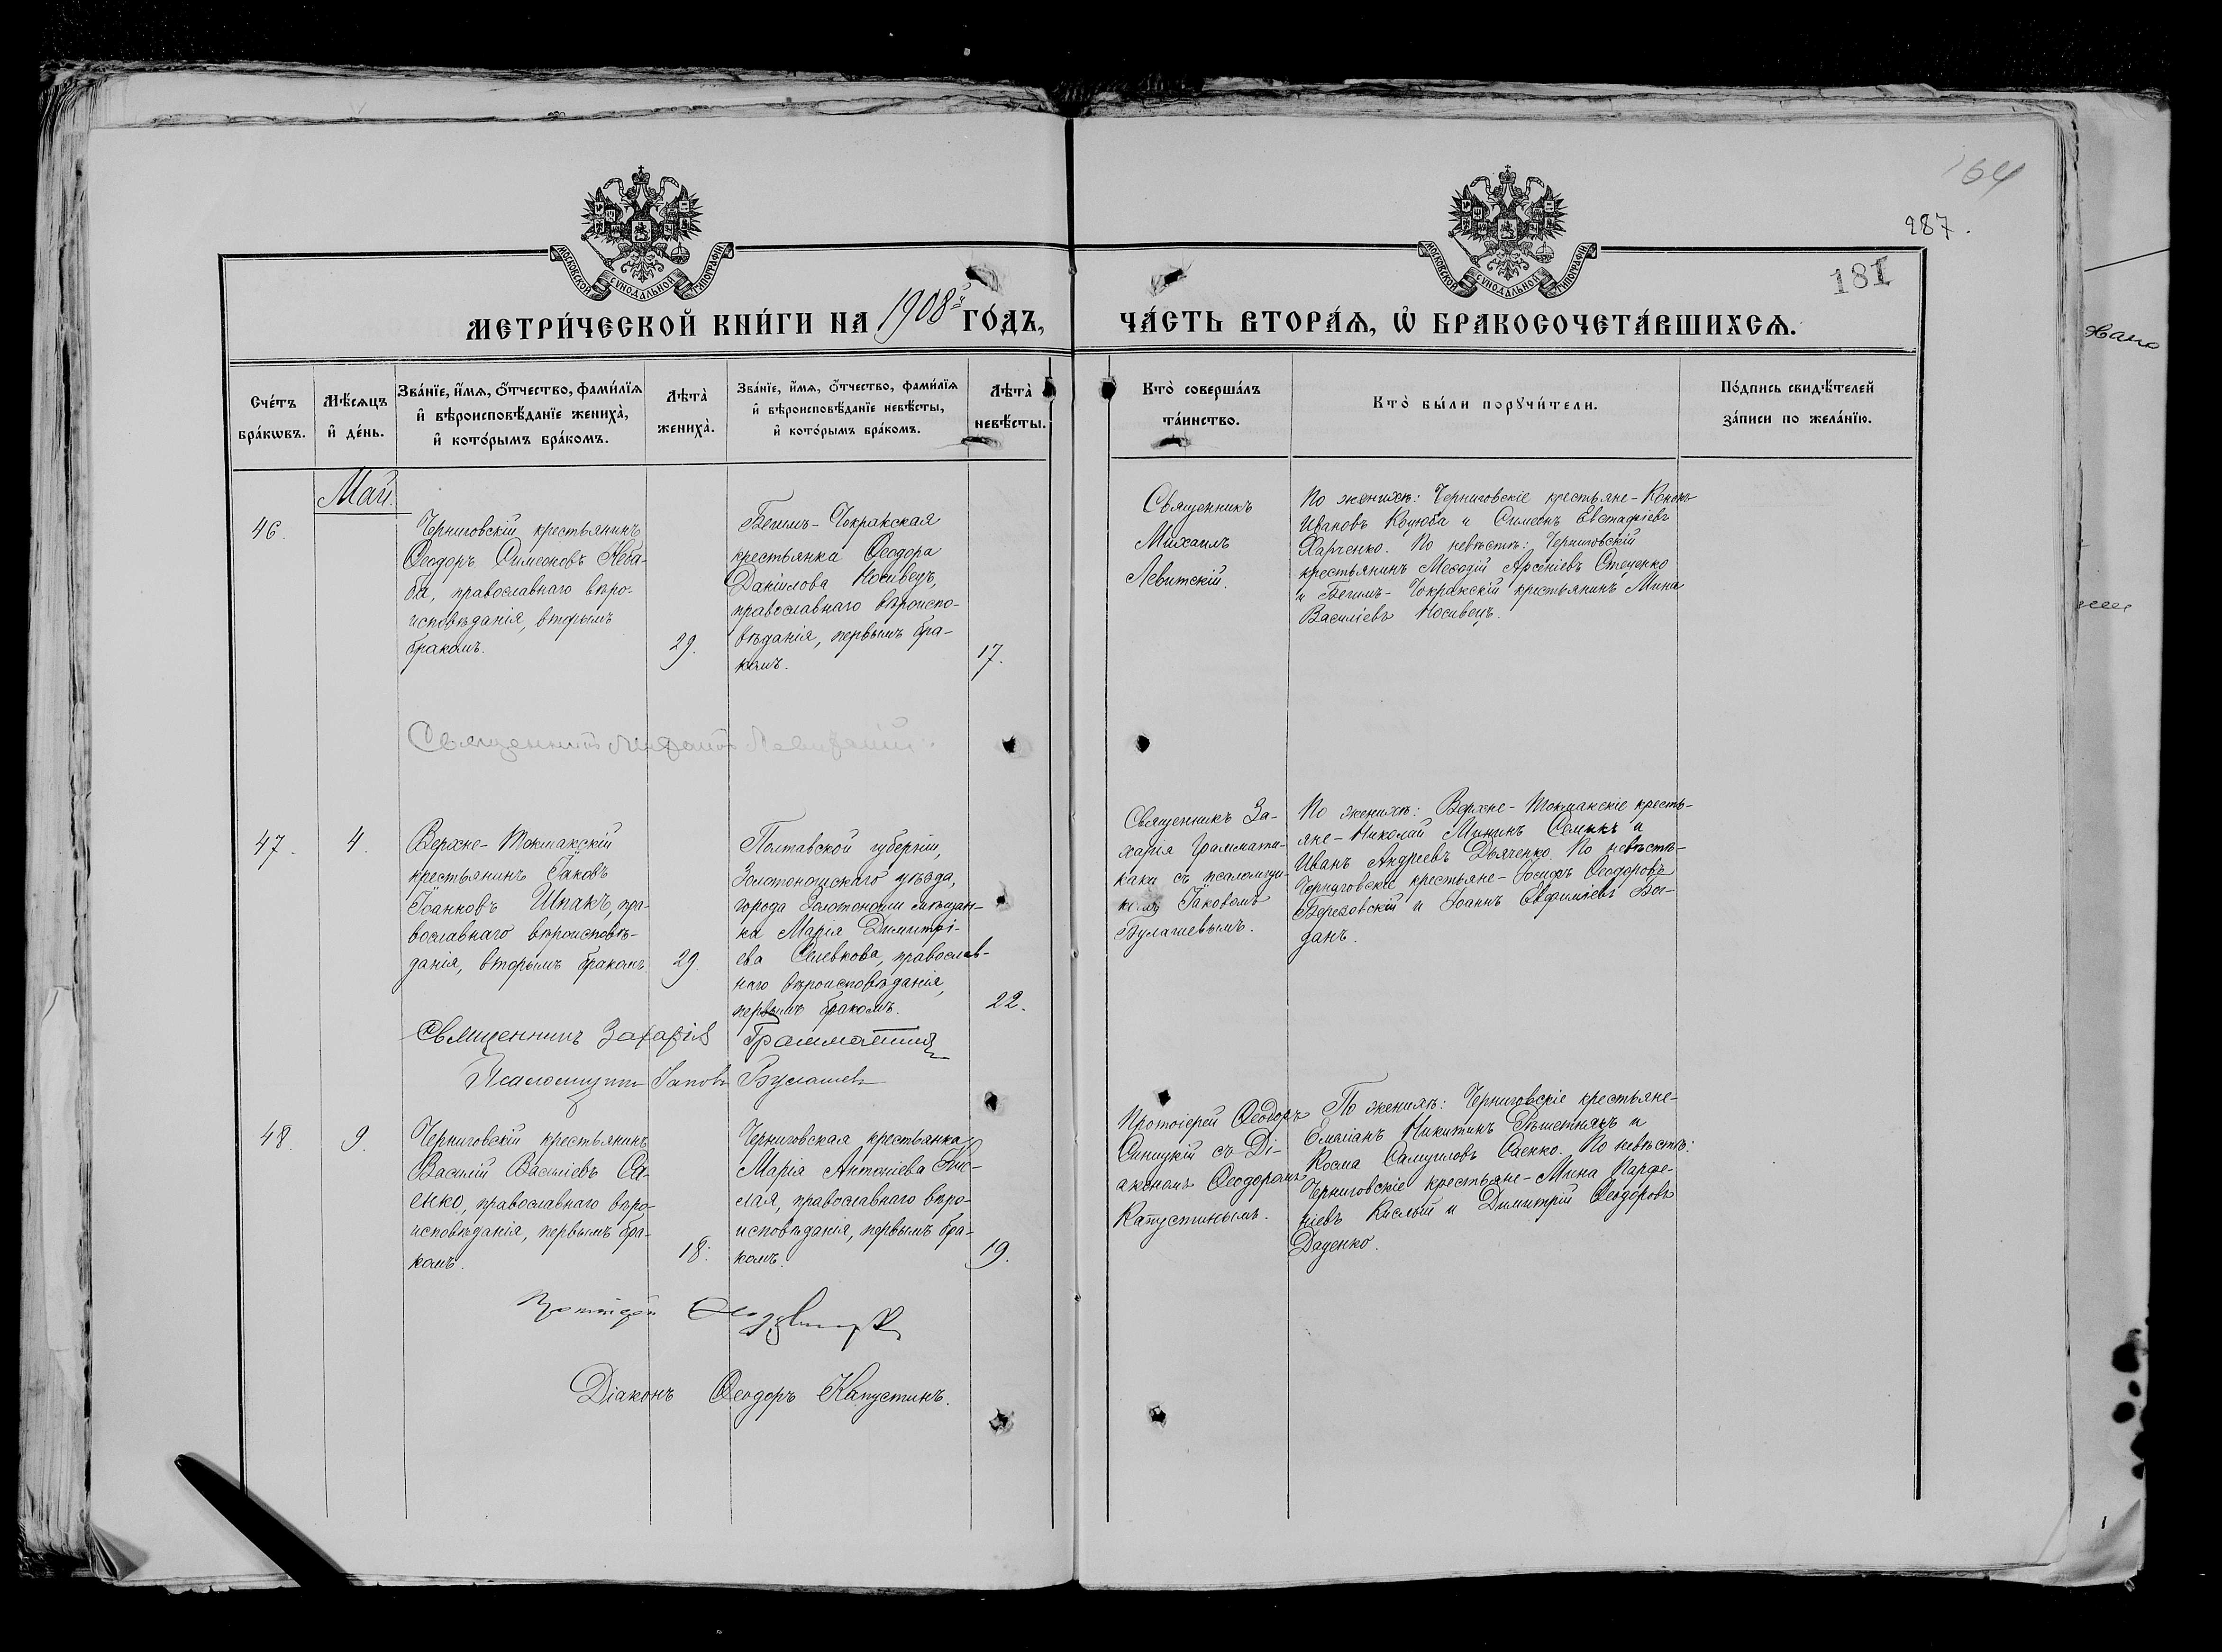 164
287.
181
МОСКОВСКОЙ СѴНОДАЛЬНОЙ ТИПОГРАФІИ
МОСКОВСКОЙ СѴНОДАЛЬНОЙ ТИПОГРАФІИ
МЕТРИ́ЧЕСКОЙ КНИ́ГИ НА 1908й ГО́ДЪ,
ЧА́СТЬ ВТОРА́Ѧ, Ѡ҆ БРАКОСОЧЕТА́ВШИХСѦ.
Сче́тъ
бра́кѡвъ.
Мѣ́сяцъ
и҆ де́нь.
Зва́нїе, и҆́мѧ, ѻ҆́тчество, фами́лїѧ
и҆ вѣроисповѣ́данїе жениха̀,
и҆ кото́рымъ бра́комъ.
Лѣта̀
жениха̀.
Зва́нїе, и҆́мѧ, ѻ҆́тчество, фами́лїѧ
и҆ вѣроисповѣ́данїе невѣ́сты,
и҆ кото́рымъ бра́комъ.
Лѣта̀
невѣ́сты.
Кто̀ соверша́лъ
та́инство.
Кто̀ бы́ли порꙋчи́тели.
По́дпись свидѣ́телей
за́писи по жела́нїю.
Май.
46.
Черниговскій крестьянинъ
Ѳеодоръ Симеоновъ Неба-
ба, православнаго вѣро-
исповѣданія, вторымъ
бракомъ.
29.
Бегимъ-Чокракская
крестьянка Ѳеодора
Даніилова Носивецъ,
православнаго вѣроиспо-
вѣданія, первымъ бра-
комъ.
17.
Священникъ
Михаилъ
Левитскій.
По женихѣ: Черниговскіе крестьяне - Кононъ
Ивановъ Коцюба и Симеонъ Евстафіевъ
Харченко. По невѣстѣ: Черниговскій
крестьянинъ Меѳодій Арсеніевъ Стеценко
и Бегимъ-Чокракскій крестьянинъ Мина
Василіевъ Носивецъ.
Священникъ Михаилъ Левитскій.
47.
4.
Верхне-Токмакскій
крестьянинъ Іаковъ
Іоанновъ Шпакъ, пра-
вославнаго вѣроисповѣ-
данія, вторымъ бракомъ
29.
Полтавской губерніи,
Золотоношскаго уѣзда,
города Золотоноши мѣщан-
ка Марія Димитрі-
ева Селевкова, православ-
наго вѣроисповѣданія,
первымъ бракомъ.
22.
Священникъ За-
харія Граммати-
каки съ псаломщи-
комъ Іаковомъ
Булашевымъ.
По женихѣ: Верхне-Токмакскіе кресть-
яне - Николай Мининъ Семыкъ и
Иванъ Андреевъ Дьяченко. По невѣстѣ-
Черниговскіе крестьяне - Іосифъ Ѳеодоровъ
Березовскій и Іоаннъ Евфиміевъ Бог-
данъ.
Священникъ Захарія Грамматикаки
Псаломщикъ Іаковъ Булашевъ
48.
9.
Черниговскій крестьянинъ
Василій Василіевъ Са-
енко, православнаго вѣро-
исповѣданія, первымъ бра-
комъ.
18.
Черниговская крестьянка
Марія Антоніева Кис-
лая, православнаго вѣро-
исповѣданія, первымъ бра-
комъ.
19.
Протоіерей Ѳеодоръ
Синицкій съ Ді-
акономъ Ѳеодоромъ
Капустинымъ.
По женихѣ: Черниговскіе крестьяне-
Емиліанъ Никитинъ Рѣшетнякъ и
Косма Самуиловъ Саенко. По невѣстѣ:
Черниговскіе крестьяне - Мина Парѳе-
ніевъ Кислый и Димитрій Ѳеодоровъ
Даценко.
Протоіерей
Діаконъ Ѳеодоръ Капустинъ.